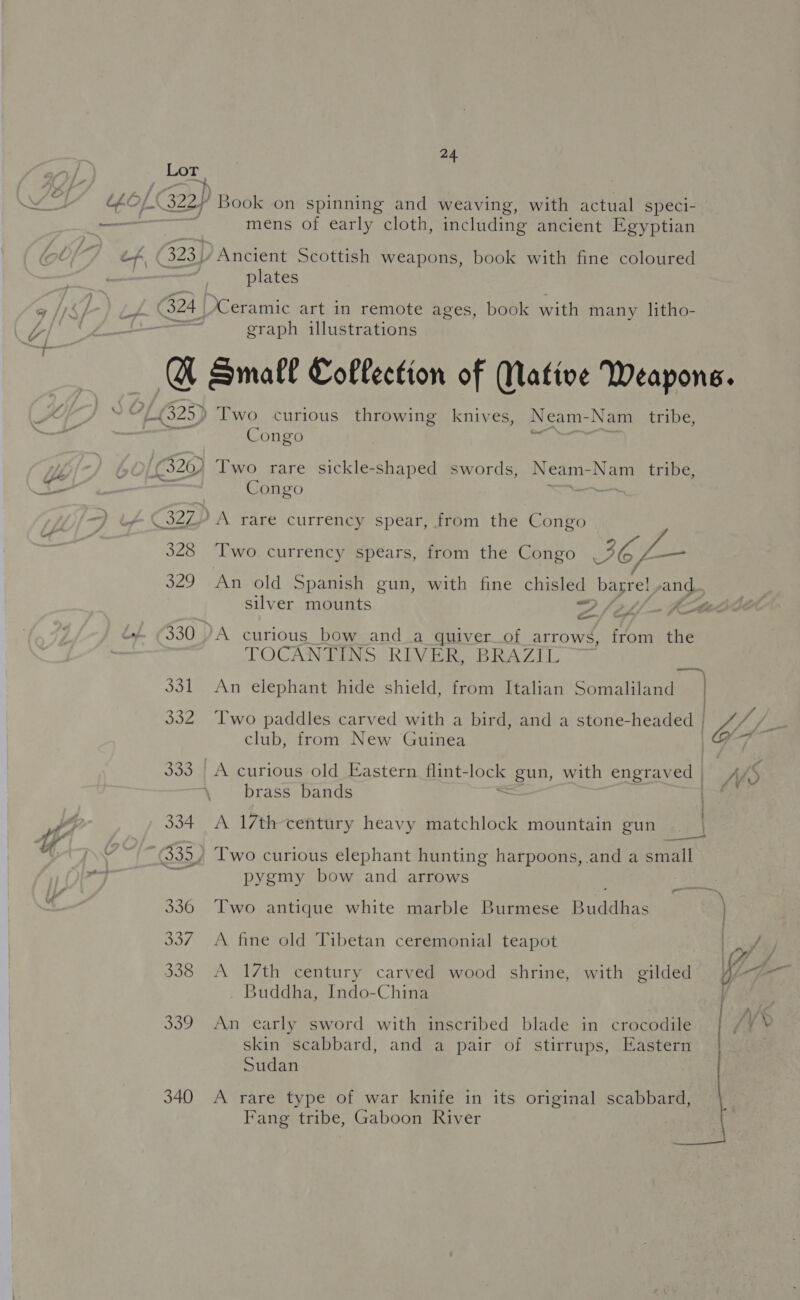 24
LOT
322 Book on spinning and weaving, with actual speci-
mens of early cloth, including ancient Egyptian
323 Ancient Scottish weapons, book with fine coloured
plates
324 Ceramic art in remote ages, book with many litho-
graph illustrations
A Small Collection of Native Weapons.
325 Two curious throwing knives, Neam-Nam tribe,
Congo
326 Two rare sickle-shaped swords, Neam-Nam tribe,
Congo
327 A rare currency spear, from the Congo
328 Two currency spears, from the Congo 36/-
329 An old Spanish gun, with fine chisled barrel and
silver mounts
330 A curious bow and a quiver of arrows, from the
TOCANTINS RIVER, BRAZIL
331 An elephant hide shield, from Italian Somaliland
332 Two paddles carved with a bird, and a stone-headed
club, from New Guinea
333 A curious old Eastern flint-lock gun, with engraved N/S
brass bands
334 A 17th century heavy matchlock mountain gun
335 Two curious elephant hunting harpoons, and a small
pygmy bow and arrows
336 Two antique white marble Burmese Buddhas
337 A fine old Tibetan ceremonial teapot
338 A 17th century carved wood shrine, with gilded
Buddha, Indo-China
339 An early sword with inscribed blade in crocodile N/S
skin scabbard, and a pair of stirrups, Eastern
Sudan
340 A rare type of war knife in its original scabbard,
Fang tribe, Gaboon River